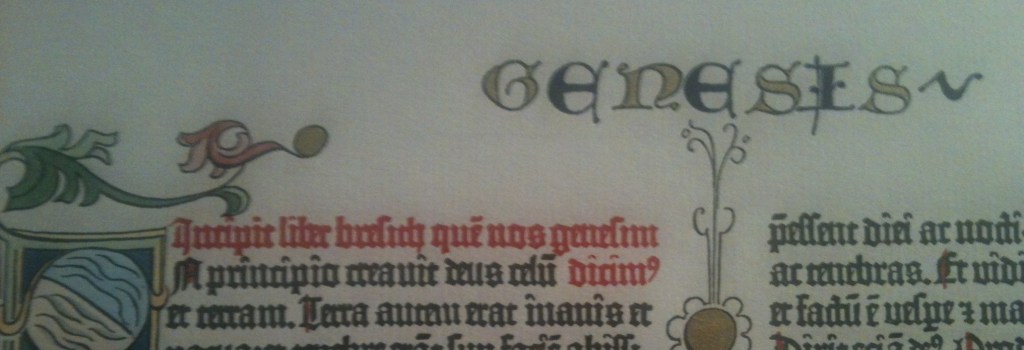 GENESIS
Incipit liber bresich quē nos genesim
A principio creauit deus celū dicimꝰ
et terram. Terra autem erat inanis et
p̄essent diei ac nocti
ac tenebras. Et uidi
et factū ē uespe ⁊ ma